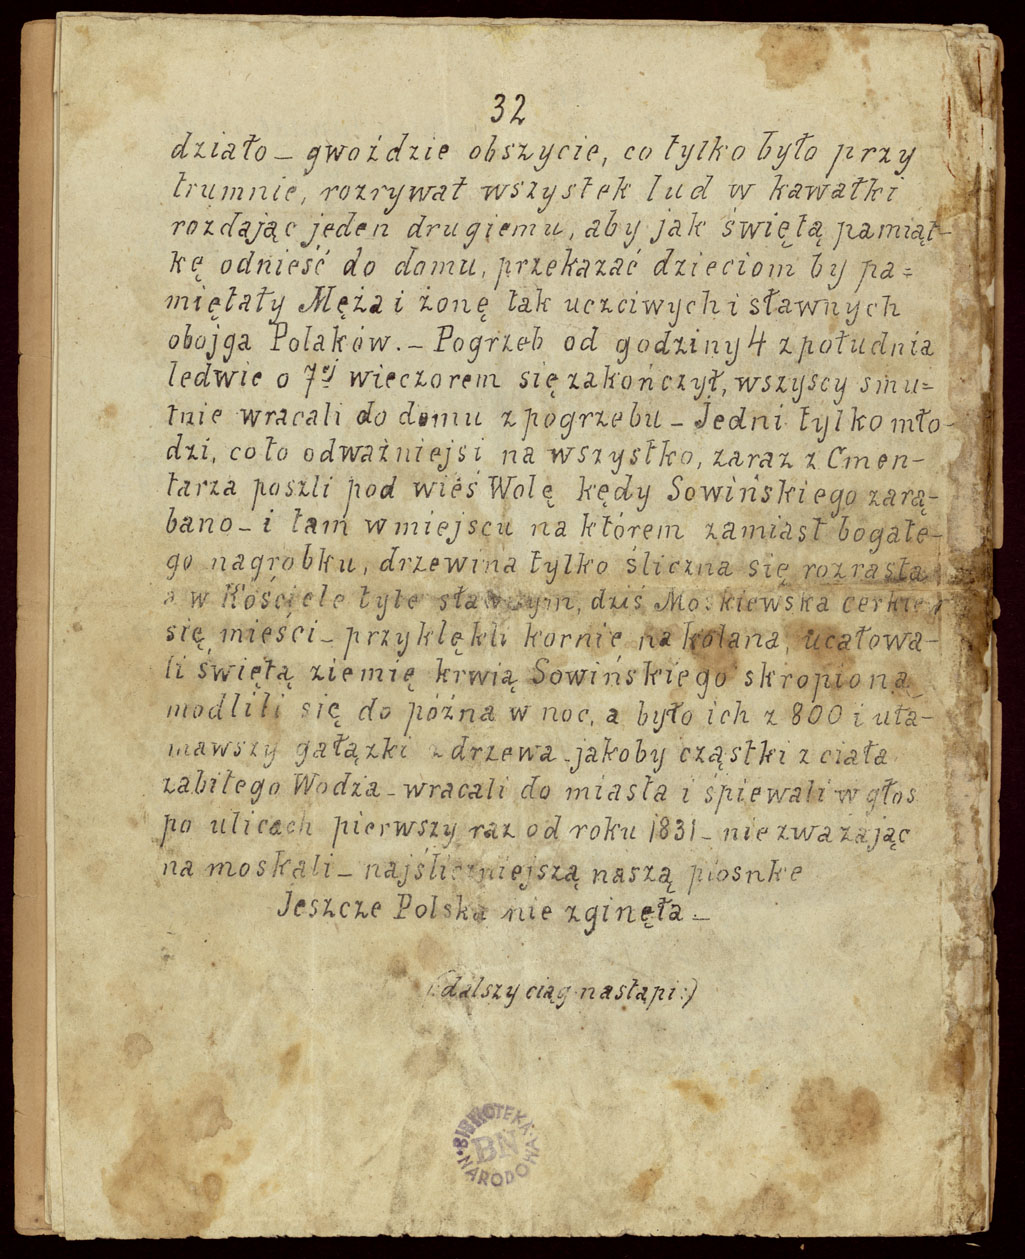 32
działo – gwoździe obszycie, co tylko było przy
trumnie, rozrywał wszystek lud w kawałki
rozdając jeden drugiemu, aby jak świętą pamiąt-
kę odnieść do domu, przekazać dzieciom by pa=
miętały Męża i żonę tak uczciwych i sławnych
obojga Polaków. – Pogrzeb od godziny 4 z południa
ledwie o 7ej wieczorem się zakończył, wszyscy smu=
tnie wracali do domu z pogrzebu – Jedni tylko mło-
dzi, co to odważniejsi na wszystko, zaraz z Cmen-
tarza poszli pod wieś Wolę kędy Sowińskiego zarą-
bano – i tam w miejscu na którem zamiast bogate-
go nagrobku, drzewina tylko śliczna się rozrasta
a w Kościele tyle sławnym, dziś Moskiewska cerkiew
się mieści – przyklękli kornie na kolana, ucałowa-
li świętą ziemię krwią Sowińskiego skropioną
modlili się do późna w noc, a było ich z 800 i uła-
mawszy gałązki z drzewa – jakoby cząstki z ciała
zabitego Wodza – wracali do miasta i śpiewali w głos
po ulicach pierwszy raz od roku 1831 – nie zważając
na moskali – najśliczniejszą naszą piosnke
Jeszcze Polska nie zginęła –
(:dalszy ciąg nastąpi:)
BIBLIOTEKA NARODOWA
BN